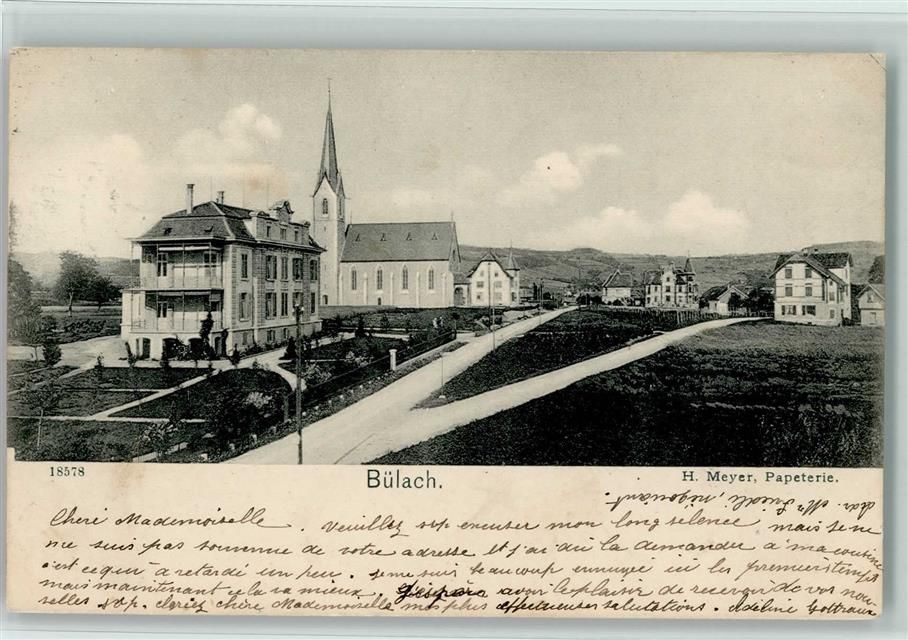 18578
Bülach.
H. Meyer, Papeterie.
adr. Mr Friedli, négociant.
Cheré Mademoiselle. Veuillez svp excuser mon long selence, mais je ne
me suis pas souvenue de votre adresse et j'ai du la demander a ma cousine
c'est ce qui a retardé un peu. je me suis beaucoup ennuyée in les premiers temps
mais maintenant cela va mieux. J'espère avoir le plaisir de recevoir de vos nou-
velles svp. chère Mademoiselle mes plus affectueuses salutations. Adeline